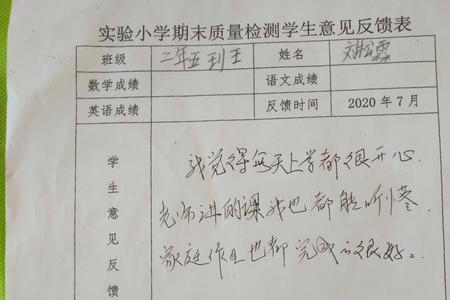 实验小学期末质量检测学生意见反馈表
班级 二年五班王 姓名
数学成绩 语文成绩
英语成绩 反馈时间 2020年7月
学生意见反馈
我觉得每天上学都很开心.
老师讲的课我也都能听懂.
家庭作业也都完成的很好。